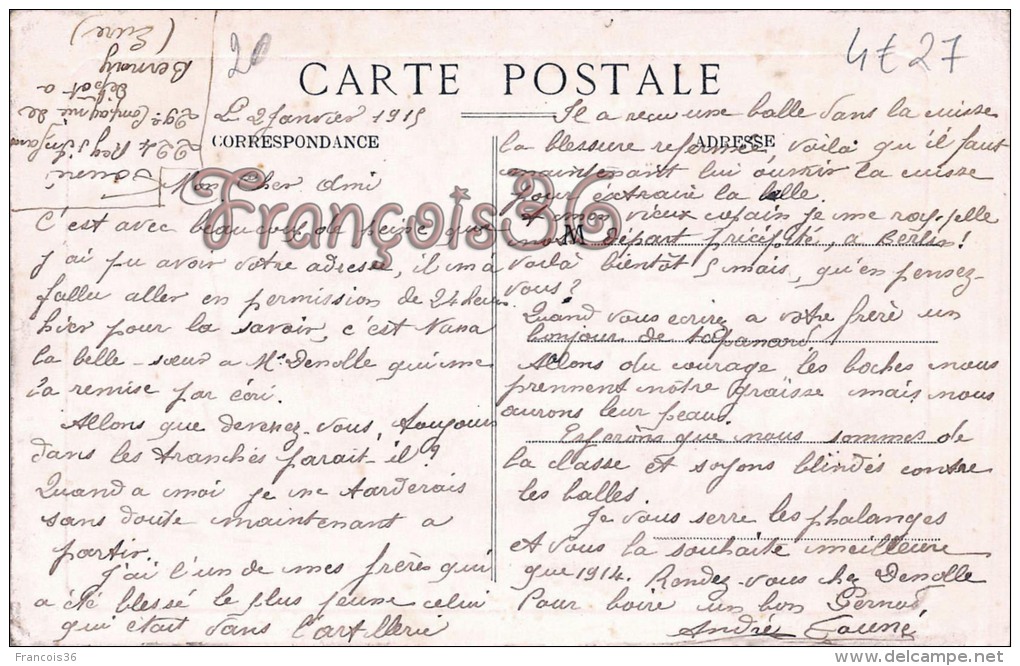 20
4t27
CARTE POSTALE
CORRESPONDANCE
ADRESSE
M
François36
André
224e Reg. d'Infanterie
29e Compagnie de
Dépôt a
Bernay
(Eure)
Le 2 Janvier 1915
Mon Cher Ami
C'est avec beaucoup de peine que
j'ai pu avoir votre adresse, il m'a
fallu aller en permission de 24 heures
hier pour la savoir, c'est Nana
la belle-sœur a Mr Denolle qui me
l'a remise par écri.
Allons que devenez-vous, toujours
dans les tranchés parait il?
Quand a moi je ne tarderais
sans doute maintenant a
partir.
J'ai l'un de mes frères qui
a été blessé le plus jeune celui
qui était dans l'artillerie
Il a reçu une balle dans la cuisse
la blessure refermée, voilà qu'il faut
maintenant lui ouvrir la cuisse
pour extraire la balle.
Et mon vieux copain je me rappelle
mon départ précipité, a Berlin!
voilà bientôt 5 mais, qu'en pensez-
vous?
Quand vous écrirez a votre frère un
bonjour de
Allons du courage les boches nous
prennent nôtre graisse mais nous
aurons leur peau.
Esperons que nous sommes de
la classe et soyons blindés contre
les balles.
Je vous serre les phalanges
et vous la souhaite meilleure
que 1914. Rendez-vous chez Denolle
Pour boire un bon Pernod
André
Francois36
delcampe.net